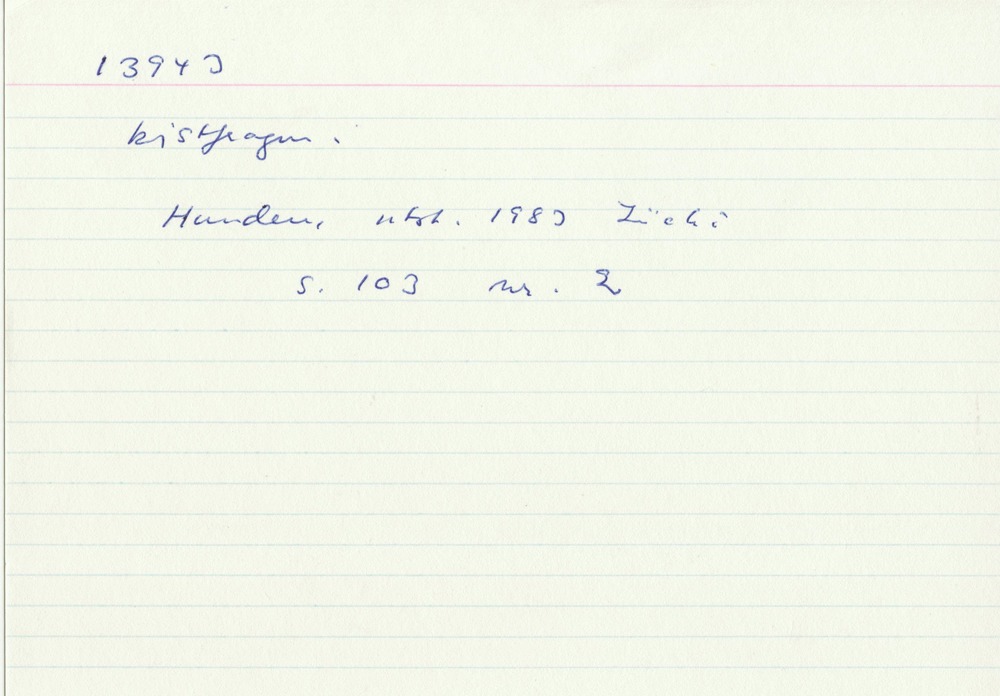 13943
kistfragm.
Hunden, utst. 1983 Zürich
s. 103 nr. 2